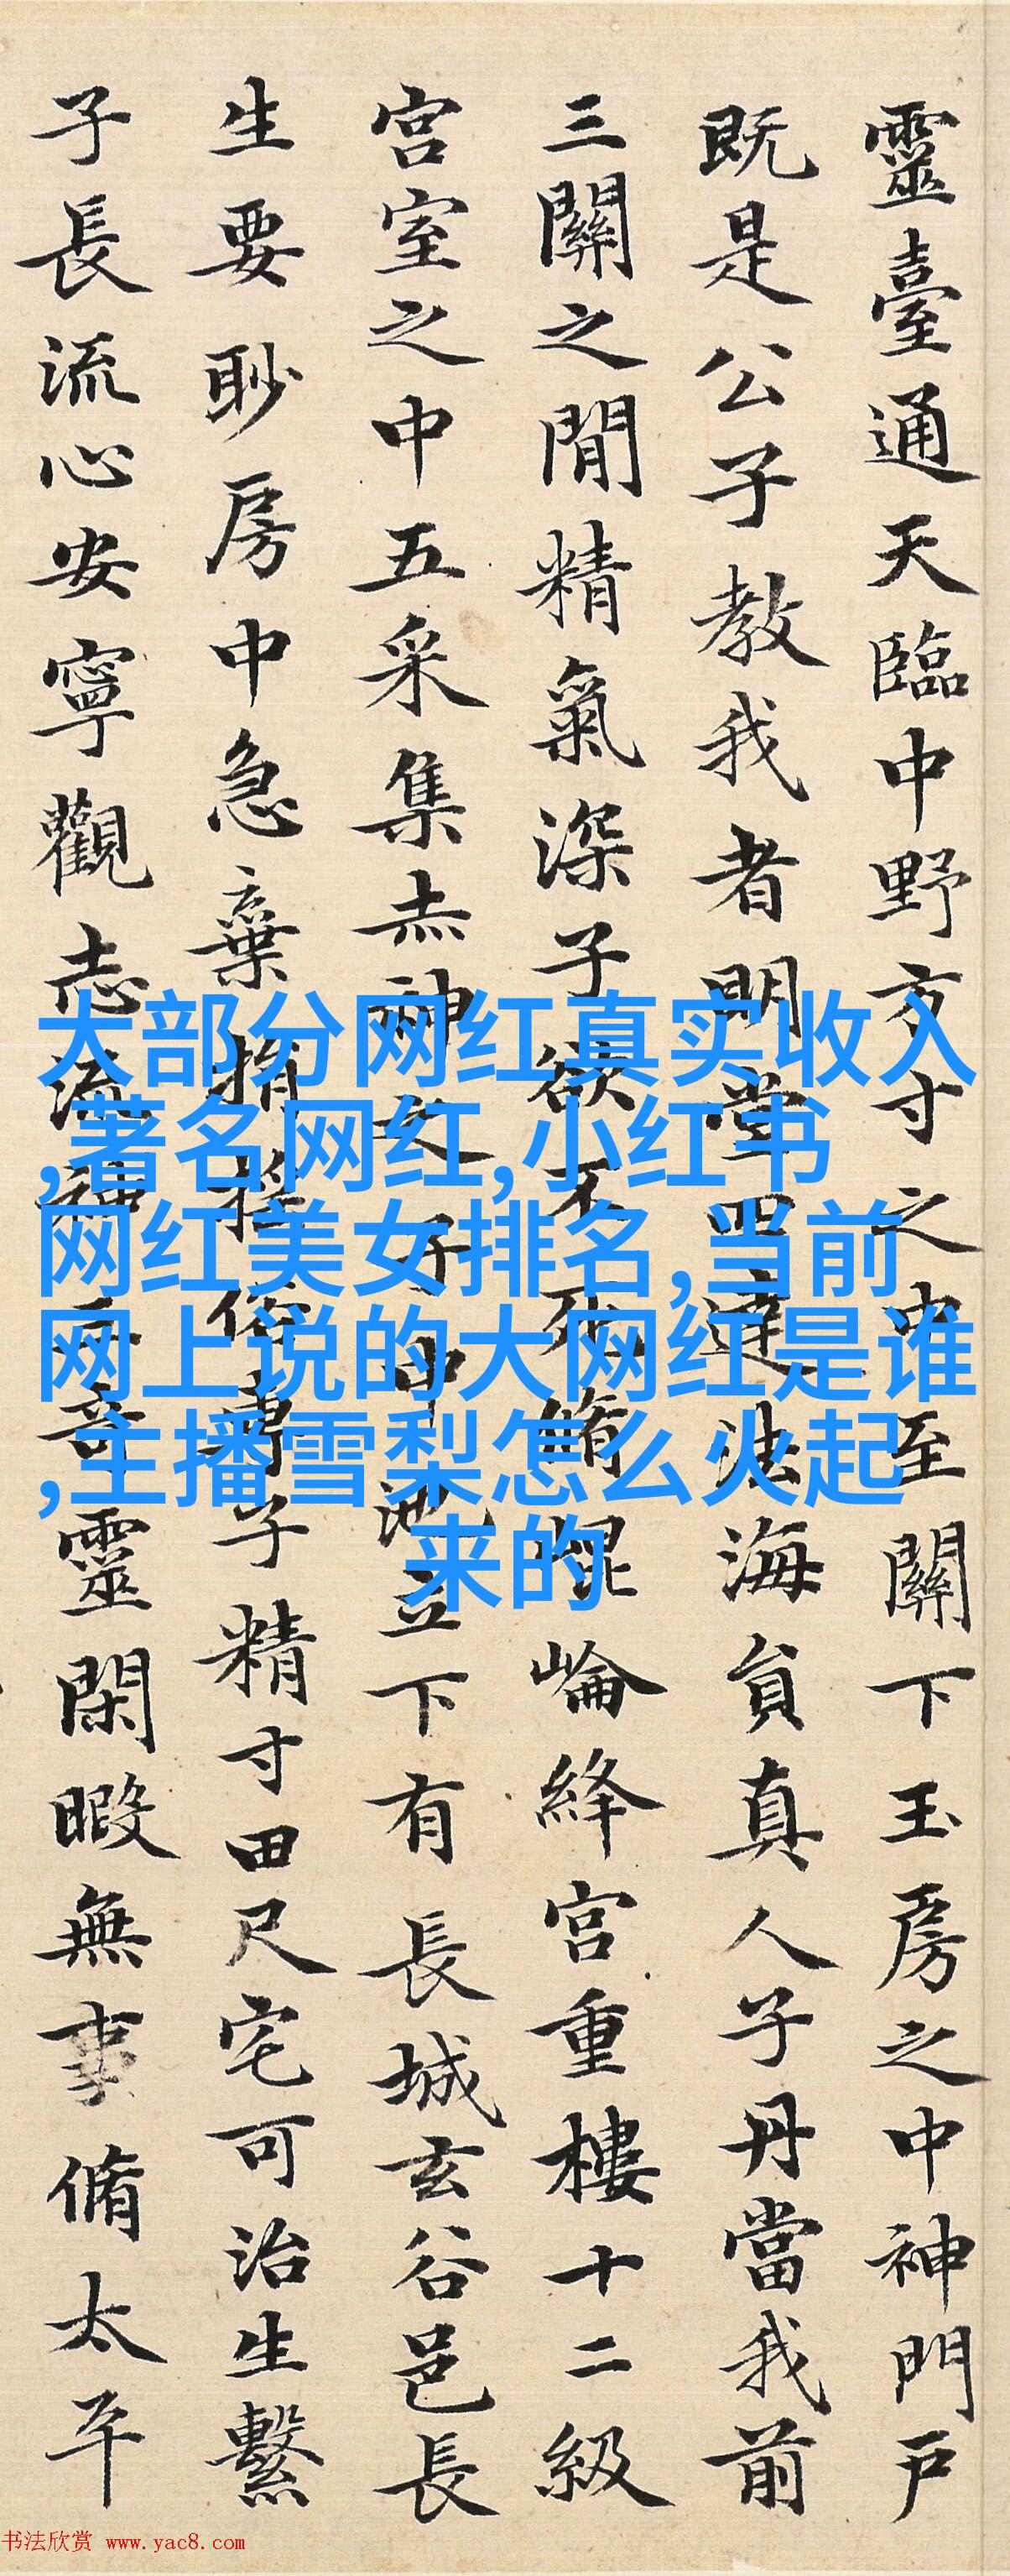 靈臺通天臨中野方寸之中至關下玉房之中神門戶
既是公子教我者明堂四達法海負真人子丹當我前
三關之間精氣深子欲不死脩崐崘絳宮重樓十二級
宮室之中五采集赤神之子中池立下有長城玄谷邑長
生要眇房中急棄捐揺俗專子精寸田尺宅可治生繫
子長流心安寧觀志流神三奇靈閑暇無事脩太平
大部分网红真实收入
,著名网红,小红书
网红美女排名,当前
网上说的大网红是谁
,主播雪梨怎么火起
来的
书法欣赏 www.yac8.com